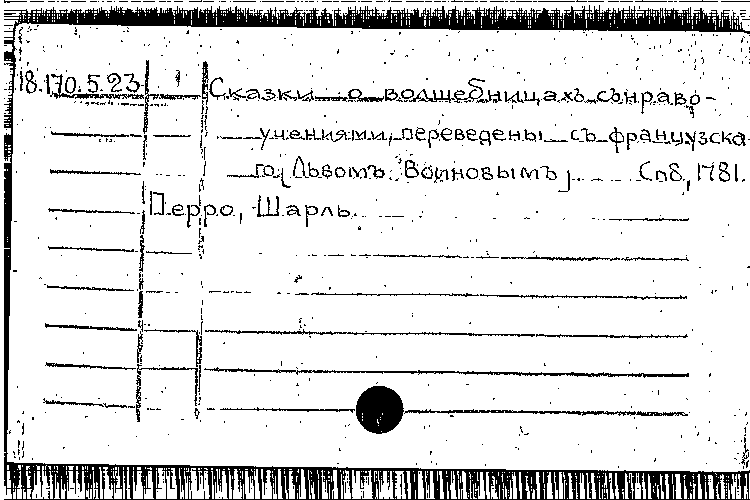 18.170.5.23 Сказки о волшебницахъ сънраво-
учениями, переведены съ французска
го [Львомъ Воиновымъ]. Спб, 1781.
Перро, Шарль.